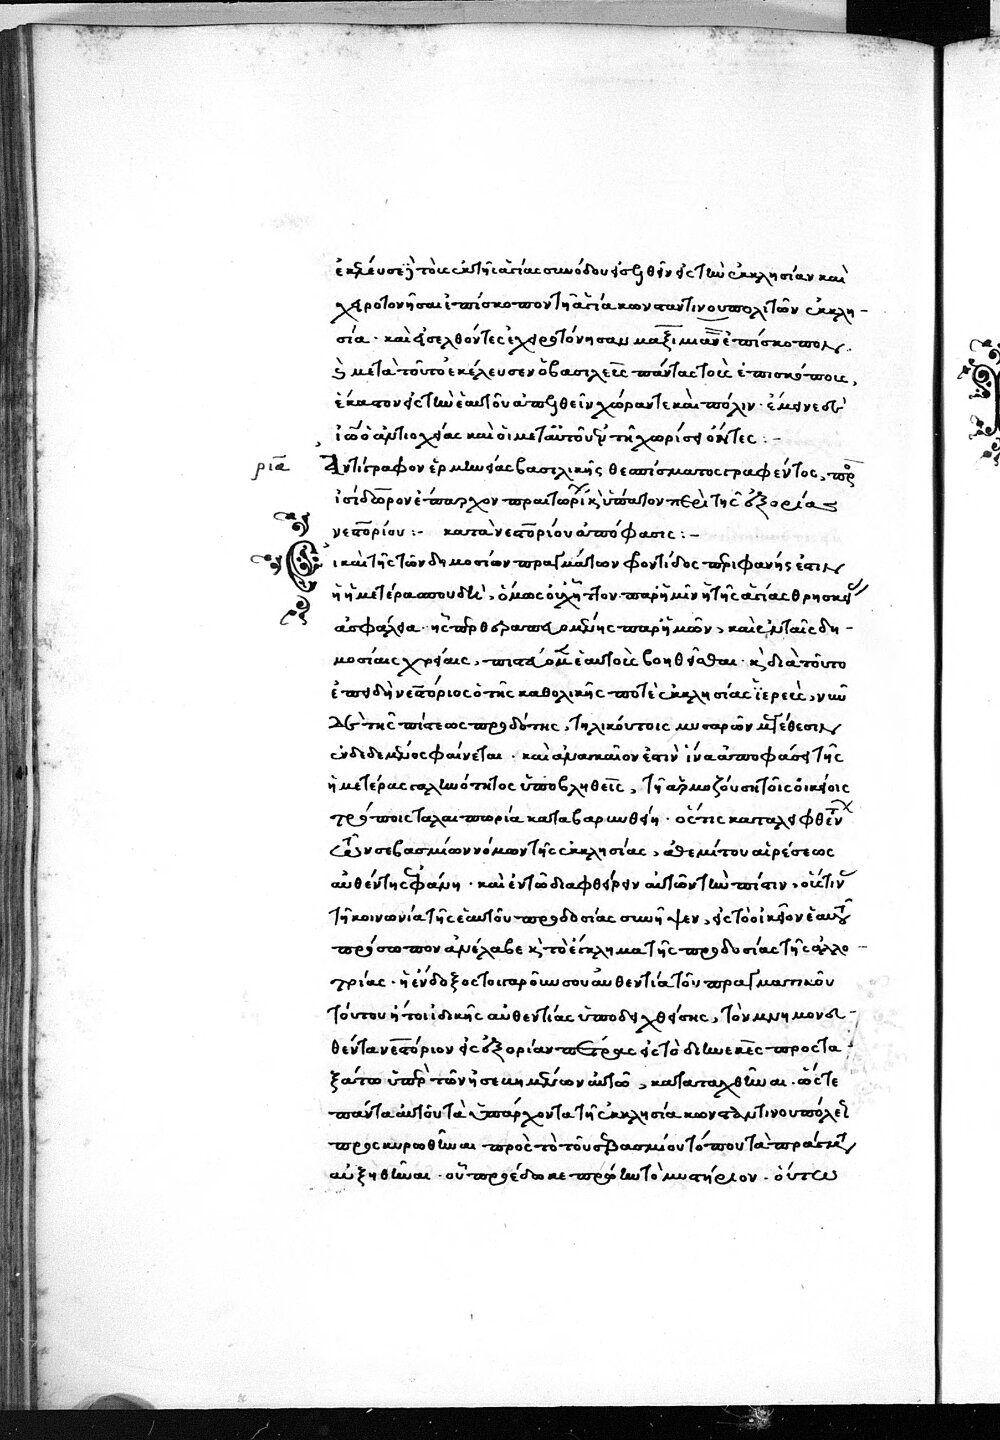 ἐκέλευσε τοὺς ἐκ τῆς ἁγίας συνόδου εἰσελθεῖν εἰς τὴν ἐκκλησίαν καὶ
χειροτονῆσαι ἐπίσκοπον τῆ ἁγία κωνσταντινουπολιτῶν ἐκκλη-
σία · καὶ εἰσελθόντες ἐχειροτόνησαν μαξιμιανὸν ἐπίσκοπον.
καὶ μετὰ τοῦτο ἐκέλευσεν ὁ βασιλεὺς πάντας τοὺς ἐπισκόπους,
ἕκαστον εἰς τὴν ἑαυτοῦ ἀπελθεῖν χώραν τε καὶ πόλιν · ἔμεινε δὲ
ἰω ὁ ἀντιοχείας καὶ οἱ μετ αὐτοῦ ἐν τῆ χωρίς ὄντες : -
ρια Ἀντίγραφον ἑρμηνείας βασιλικῆς θεσπίσματος γραφέντος, πρὸς
ἰσίδωρον ἔπαρχον πραιτωρίων καὶ ὕπατον περὶ τῆς ἐξορίας
νεστορίου : - κατὰ νεστορίου ἀπόφασις : -
Εἰ καὶ τῆς τῶν δημοσίων πραγμάτων φροντίδος περιφανής ἐστιν
ἡ ἡμετέρα σπουδὴ, ὅμως οὐχ ἧττον παρ ἡμῖν ἡ τῆς ἁγίας θρησκείας
ἀσφάλεια · ἧς περ θεραπευομένης παρ ἡμῶν, καὶ ἐν ταῖς δη-
μοσίαις χρείαις, πιστεύομεν ἑαυτοὺς βοηθεῖσθαι · καὶ διὰ τοῦτο
ἐπειδὴ νεστόριος ὁ τῆς καθολικῆς ποτὲ ἐκκλησίας ἱερεὺς, νῦν
δὲ τῆς πίστεως προδότης, τηλικούτοις μυσαρῶν
ἐνδεδεμένος φαίνεται · καὶ ἀναγκαῖον ἐστὶν ἵνα ἀποφάσει τῆς
ἡμετέρας γαληνότητος ὑποβληθεὶς, τῆ ἁρμοζούση τοῖς οἰκείοις
τρόποις ταλαιπωρία καταβαρυνθείη · ὅς τις καταλειφθέντων
τῶν σεβασμίων νόμων τῆς ἐκκλησίας, ἀθεμίτου αἱρέσεως
αὐθέντης ἐφάνη · καὶ ἐν τῶ διαφθείρειν αὐτῶν τὴν πίστιν, οὕς τινας
τῆ κοινωνία τῆς ἑαυτοῦ προδοσίας συνῆψεν, εἰς τὸ οἰκεῖον ἑαυτοῦ
πρόσωπον ἀνέλαβε καὶ τὸ ἔγκλημα τῆς προδοσίας τῆς ἀλλο-
τρίας · ἡ ἔνδοξος τοιγαροῦν σου αὐθεντία τοῦ πραγματικοῦ
τούτου ἤτοι ἰδικῆς αὐθεντίας ὑποδειχθείσης, τὸν μνημονευ-
θέντα νεστόριον εἰς ἐξορίαν πέτρας εἰς τὸ διηνεκὲς προστα-
ξάτω ὑπὲρ τῶν αὐτῶ, καταταχθῆναι · ὥστε
πάντα αὐτοῦ τὰ ὑπάρχοντα τῆ ἐκκλησία κωνσταντινουπόλεως
προσκυρωθῆναι πρὸς τὸ τοῦ σεβασμίου τόπου τὰ πράγματα
αὐξηθῆναι · οὗ προέδωκε πρώην τὸ μυστήριον · οὕτω